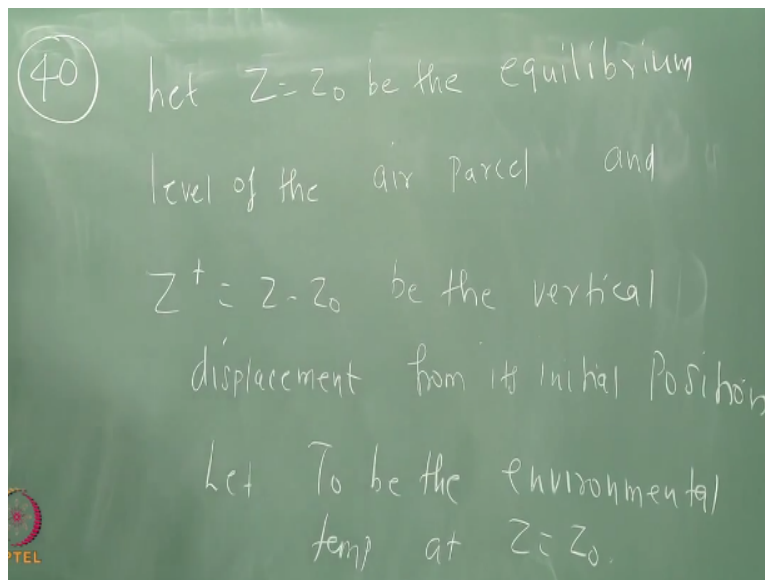 40
Let Z = Z₀ be the equilibrium
level of the air parcel and
Z⁺ = Z - Z₀ be the vertical
displacement from its initial Position
Let T₀ be the environmental
temp at Z = Z₀.
PTEL